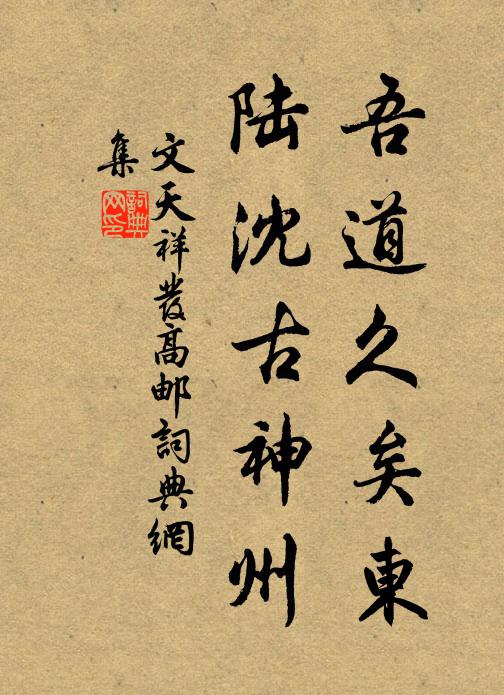 吾道久矣東
陸沈古神州
文天祥發高邮詞典網
集
詞典
网印